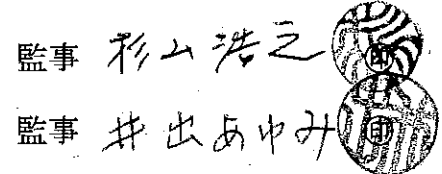 監事 杉山浩之 印
監事 井出あゆみ 印